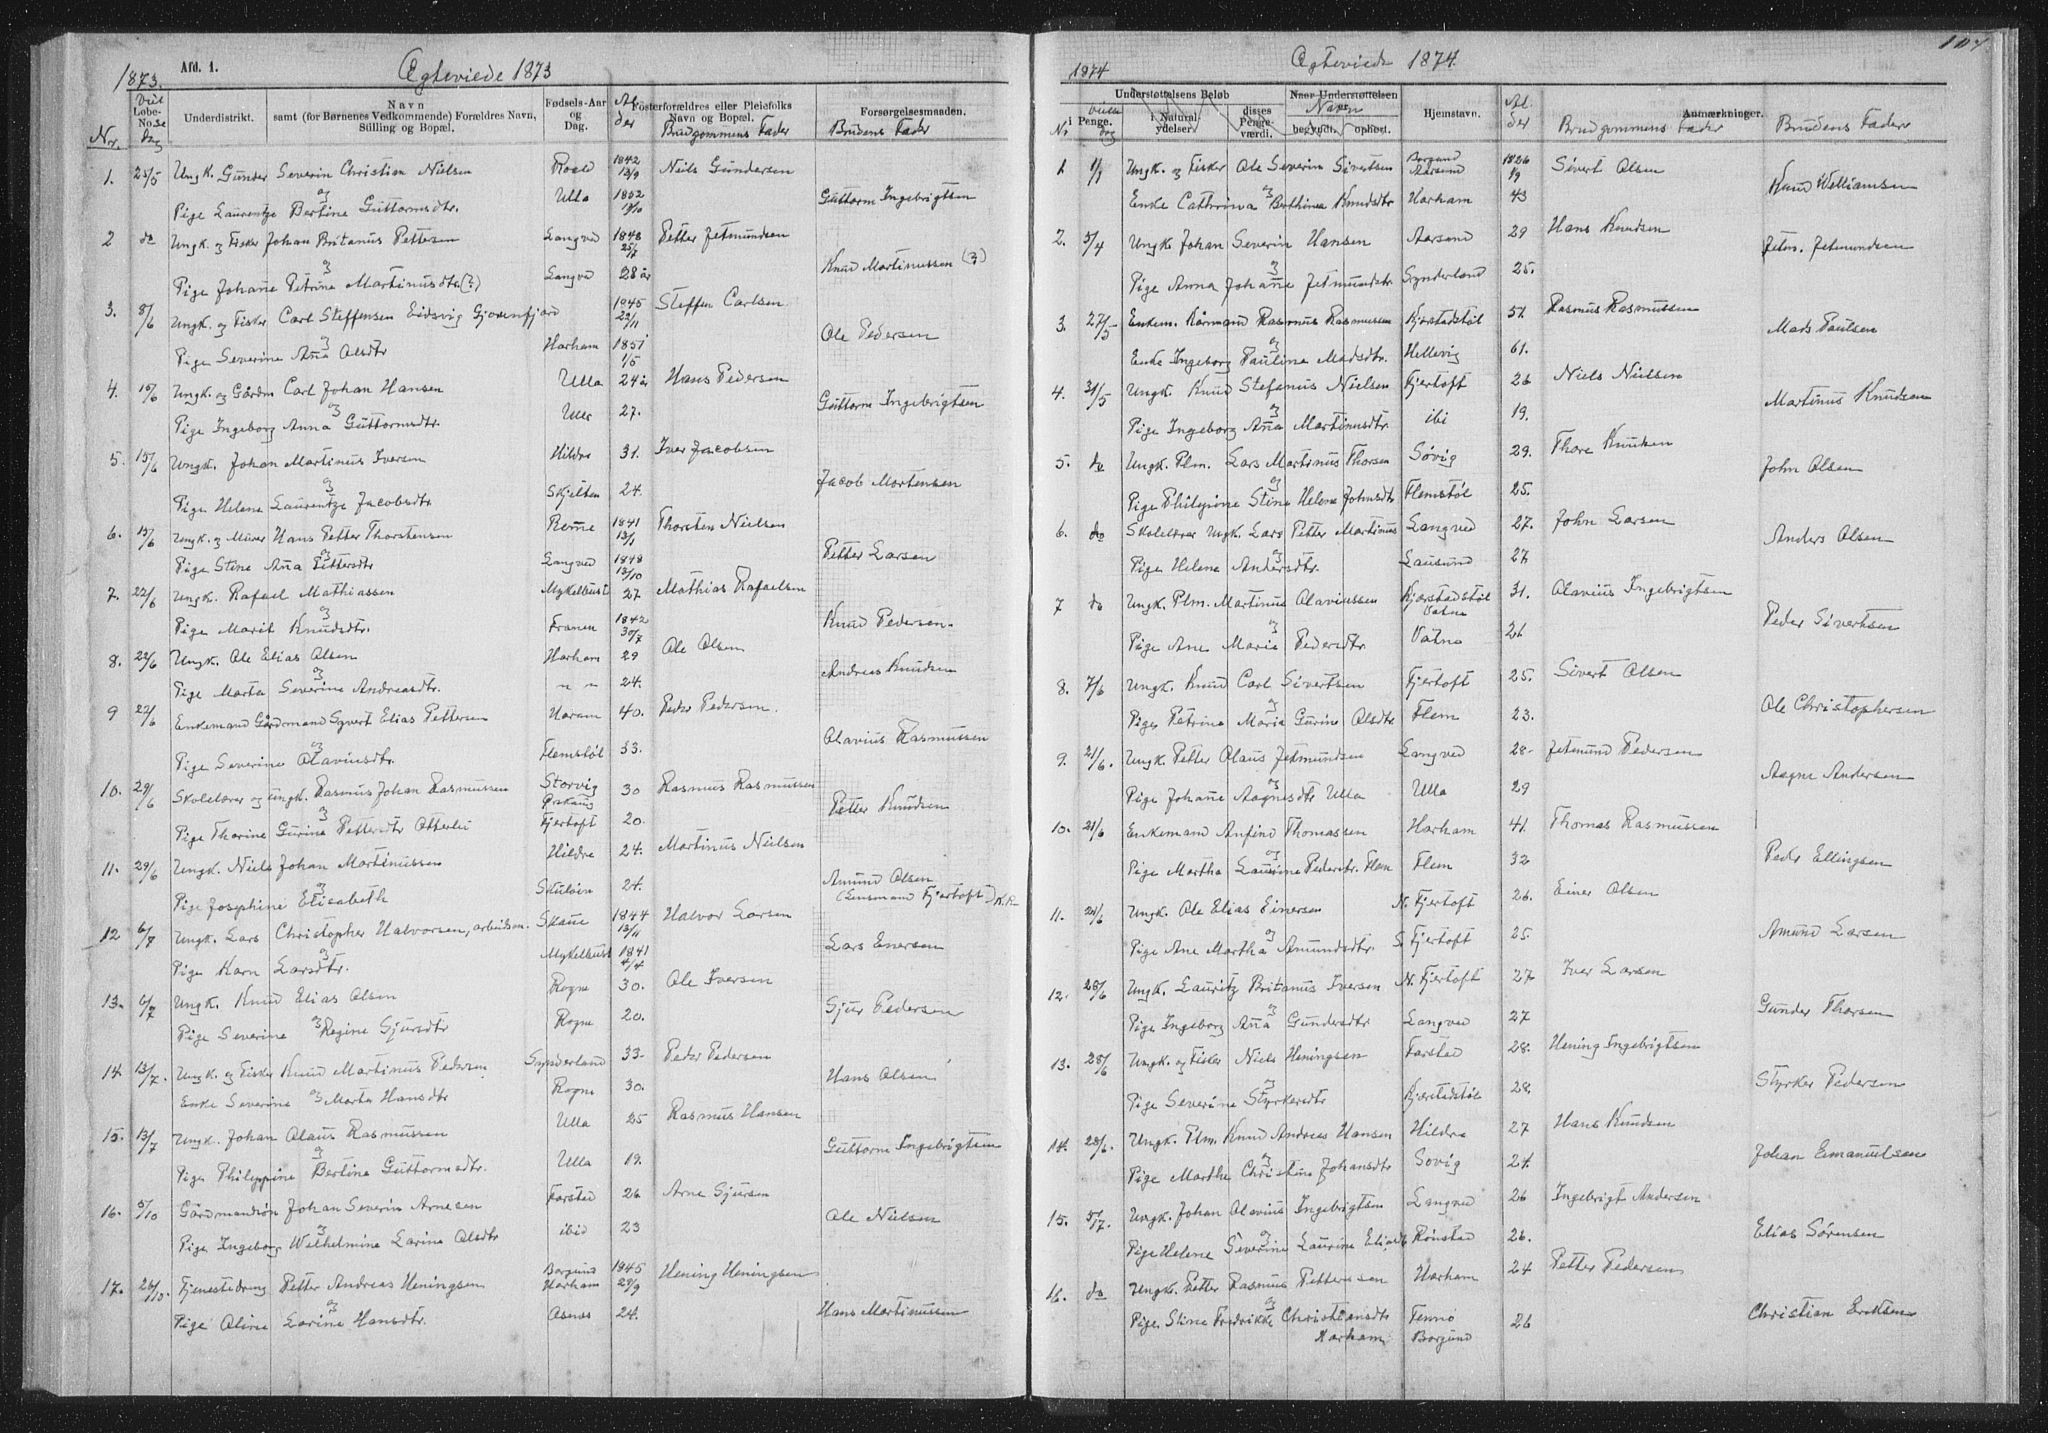 Afd. 1.
Ægteviede 1873
1873.
Viet
Løbe-
No.
Dag
Nr.
Underdistrikt.
Navn
samt (for Børnenes Vedkommende) Forældres Navn,
Stilling og Bopæl.
Fødsels-Aar
og
Dag.
Al
der
Fosterforældres eller Pleiefolks
Navn og Bopæl.
Brudgommens Fader
Forsørgelsesmaaden.
Brudens Fader
1. 25/5 Ungk. Gunder Severin Christian Nielsen Roald 1842 13/9 Niels Gundersen
og
Pige Laurentze Bertine Guttormsdtr. Ulla 1852 19/10 Guttorm Ingebrigtsen
2 do Ungk. og Fisker Johan Britanus Pettersen Langved 1848 25/7 Petter Jetmundsen
og
Pige Johane Petrine Martinusdtr (?) Langved 28 år Knud Martinussen (?)
3. 8/6 Ungk. og Fisker Carl Steffensen Eidsvig Gjorenfjord 1845 22/11 Steffen Carlsen
og
Pige Severine Ana Olsdtr Harham 1851 1/5 Ole Pedersen
4. 15/6 Ungk. og Gårdm Carl Johan Hansen Ulla 24 år Hans Pedersen
og
Pige Ingeborg Anna Guttormsdtr. Ulla 27. Guttorm Ingebrigtsen
5. 15/6 Ungk. Johan Martinus Iversen Hildre 31. Iver Jacobsen
og
Pige Helene Laurentze Jacobsdtr Skjelten 24. Jacob Mortensen
6. 15/6 Ungk. og Murer Hans Petter Thorstensen Rønne 1841 13/1 Thorsten Nielsen
og
Pige Stine Ana Pettersdtr Langved 1848 13/10 Petter Larsen
7. 22/6 Ungk. Rafael Mathiassen Mykelbust 27 Mathias Rafaelsen
og
Pige Marit Knudsdtr. Franen 1842 30/7 Knud Pedersen.
8. 22/6 Ungk. Ole Elias Olsen Harham 29 Ole Olsen
og
Pige Marta Severine Andreasdtr. " " 24. Andreas Knudsen
9 22/6 Enkemand Gårdmand Syvert Elias Pettersen Haram 40. Peder Pedersen.
og
Pige Severine Olaviusdtr. Flemstøl 33. Olavius Rasmussen
10. 29/6 Skolelærer og ungk. Rasmus Johan Rasmussen Storvig Ørskoug 30 Rasmus Rasmussen
og
Pige Thorine Gurine Pettersdtr Otterlei Fjertoft 20. Petter Knudsen
11. 29/6 Ungk. Niels Johan Martinussen Hildre 24. Martinus Nielsen
og
Pige Josephine Elisabeth Skuløen 24. Amund Olsen
(Lensmand Fjertoft)
12 6/7 Ungk. Lars Christopher Halvorsen, arbeidsm. Skaue 1844 13/11 Halvor Larsen
og
Pige Karn Larsdtr. Mykelbust 1841 4/4 Lars Enersen
13. 6/7 Ungk. Knud Elias Olsen Rogne 30. Ole Iversen
Pige Severine og Regine Gjursdtr Rogne 20. Gjur Pedersen
14. 13/7. Ungk. og Fisker Knud Martinus Pedersen Synderland 33. Peder Pedersen
Enke Severine og Marta Hansdtr Rogne 30. Hans Olsen
15. 13/7 Ungk. Johan Olaus Rasmussen Ulla 25 Rasmus Hansen
og
Pige Philippine Bertine Guttormsdtr. Ulla 19. Guttorm Ingebrigtsen
16. 5/10 Gårdmandsøn Johan Severin Arnesen Farstad 26 Arne Gjursen
og
Pige Ingeborg Wilhelmine Larine Olsdtr ibid 23 Ole Nielsen
17. 26/10. Tjenestedreng Petter Andreas Heningsen Borgund Harham 1845 29/9 Hening Heningsen
og
Pige Oline Larine Hansdtr. Osnes 24. Hans Martinussen
107
1874
Ægteviede 1874.
Understøttelsens Beløb
i Penge.
i Natural-
ydelser.
disses
Penge-
værdi.
Naar Understøttelsen
Navn
begyndt.
ophørt.
Hjemstavn.
Al
der
Anmærkninger.
Brudgommens Fader
Brudens Fader
Nr
Vielse
dag
1 1/1 Ungk. og Fisker Ole Severin Sivertsen Borgund Aarsund 1826 1/9 Sivert Olsen
og
Enke Cathrina Berthine Knudsdtr Harham 43 Knud Williamsen
2. 5/4 Ungk Johan Severin Hansen Aarsund 29 Hans Knudsen
og
Pige Anna Johane Jetmundsdtr Synderland 25. Jetm. Jetmundsen
3. 27/5 Enkem. Kårmand Rasmus Rasmussen Kjerstadstøl 51. Rasmus Rasmussen
og
Enke Ingeborg Pauline Madsdtr. Hellevig 61. Mads Paulsen
4. 31/5 Ungk. Knud Stefanus Nielsen Fjertoft 26 Niels Nielsen
og
Pige Ingeborg Ana Martinusdtr. ibi 19. Martinus Knudsen
5. do Ungk. Plm. Lars Martinus Thorsen Søvig 29. Thore Knudsen
og
Pige Philipine Stine Helene Johnsdtr Flemstøl 25. John Olsen
6. do Skolelærer Ungk. Lars Petter Martinus Langved 27. John Larsen
og
Pige Helene Andersdtr. Lausund 27. Anders Olsen
7 do Ungk. Plm. Martinus Olaviussen Kjerstadstøl Vatne 31. Olavius Ingebrigtsen
og
Pige Ane Marie Pedersdtr Vatne 21. Peder Sivertsen
8. 7/6 Ungk. Knud Carl Sivertsen Fjertoft 25. Sivert Olsen
og
Pige Petrine Marie Gurine Olsdtr Flem 23. Ole Christophersen
9. 21/6. Ungk. Petter Olaus Jetmundsen Langved 28. Jetmund Pedersen
og
Pige Johane Aagnesdtr Ulla Ulla 29 Aagne Andersen
10. 21/6 Enkemand Anfind Thomassen Harham 41. Thomas Rasmussen
og
Pige Martha Laurine Pedersdtr. Flem Flem 32 Peder Ellingsen
11. 21/6 Ungk. Ole Elias Einersen N. Fjertoft 26. Einer Olsen
og
Pige Ane Martha Amundsdtr. S. Fjertoft 25 Amund Larsen
12. 28/6 Ungk. Lauritz Britanus Iversen N. Fjertoft 27 Iver Larsen
og
Pige Ingeborg Ana Gundersdtr Langved 27 Gunder Thorsen
13. 28/6 Ungk. og Fisker Niels Heningsen Farstad 28. Hening Ingebrigtsen
og
Pige Severine Styrkersdtr Kjerstadstøl 28. Styrker Pedersen
14. 28/6. Ungk. Plm. Knud Andreas Hansen Hildre 27 Hans Knudsen
og
Pige Marthe Christine Johansdtr Søvig 24. Johan Emanuelsen
15. 5/7. Ungk. Johan Olavius Ingebrigtsen Langved 26 Ingebrigt Andersen
og
Pige Helene Severine Laurine Eliasdtr Rønstad 26. Elias Sørensen
16. do Ungk. Petter Rasmus Pettersen Harham 24 Petter Pedersen
og
Pige Stine Fredrikke Christiansdtr Harham Tennø Borgund 26 Christian Eriksen